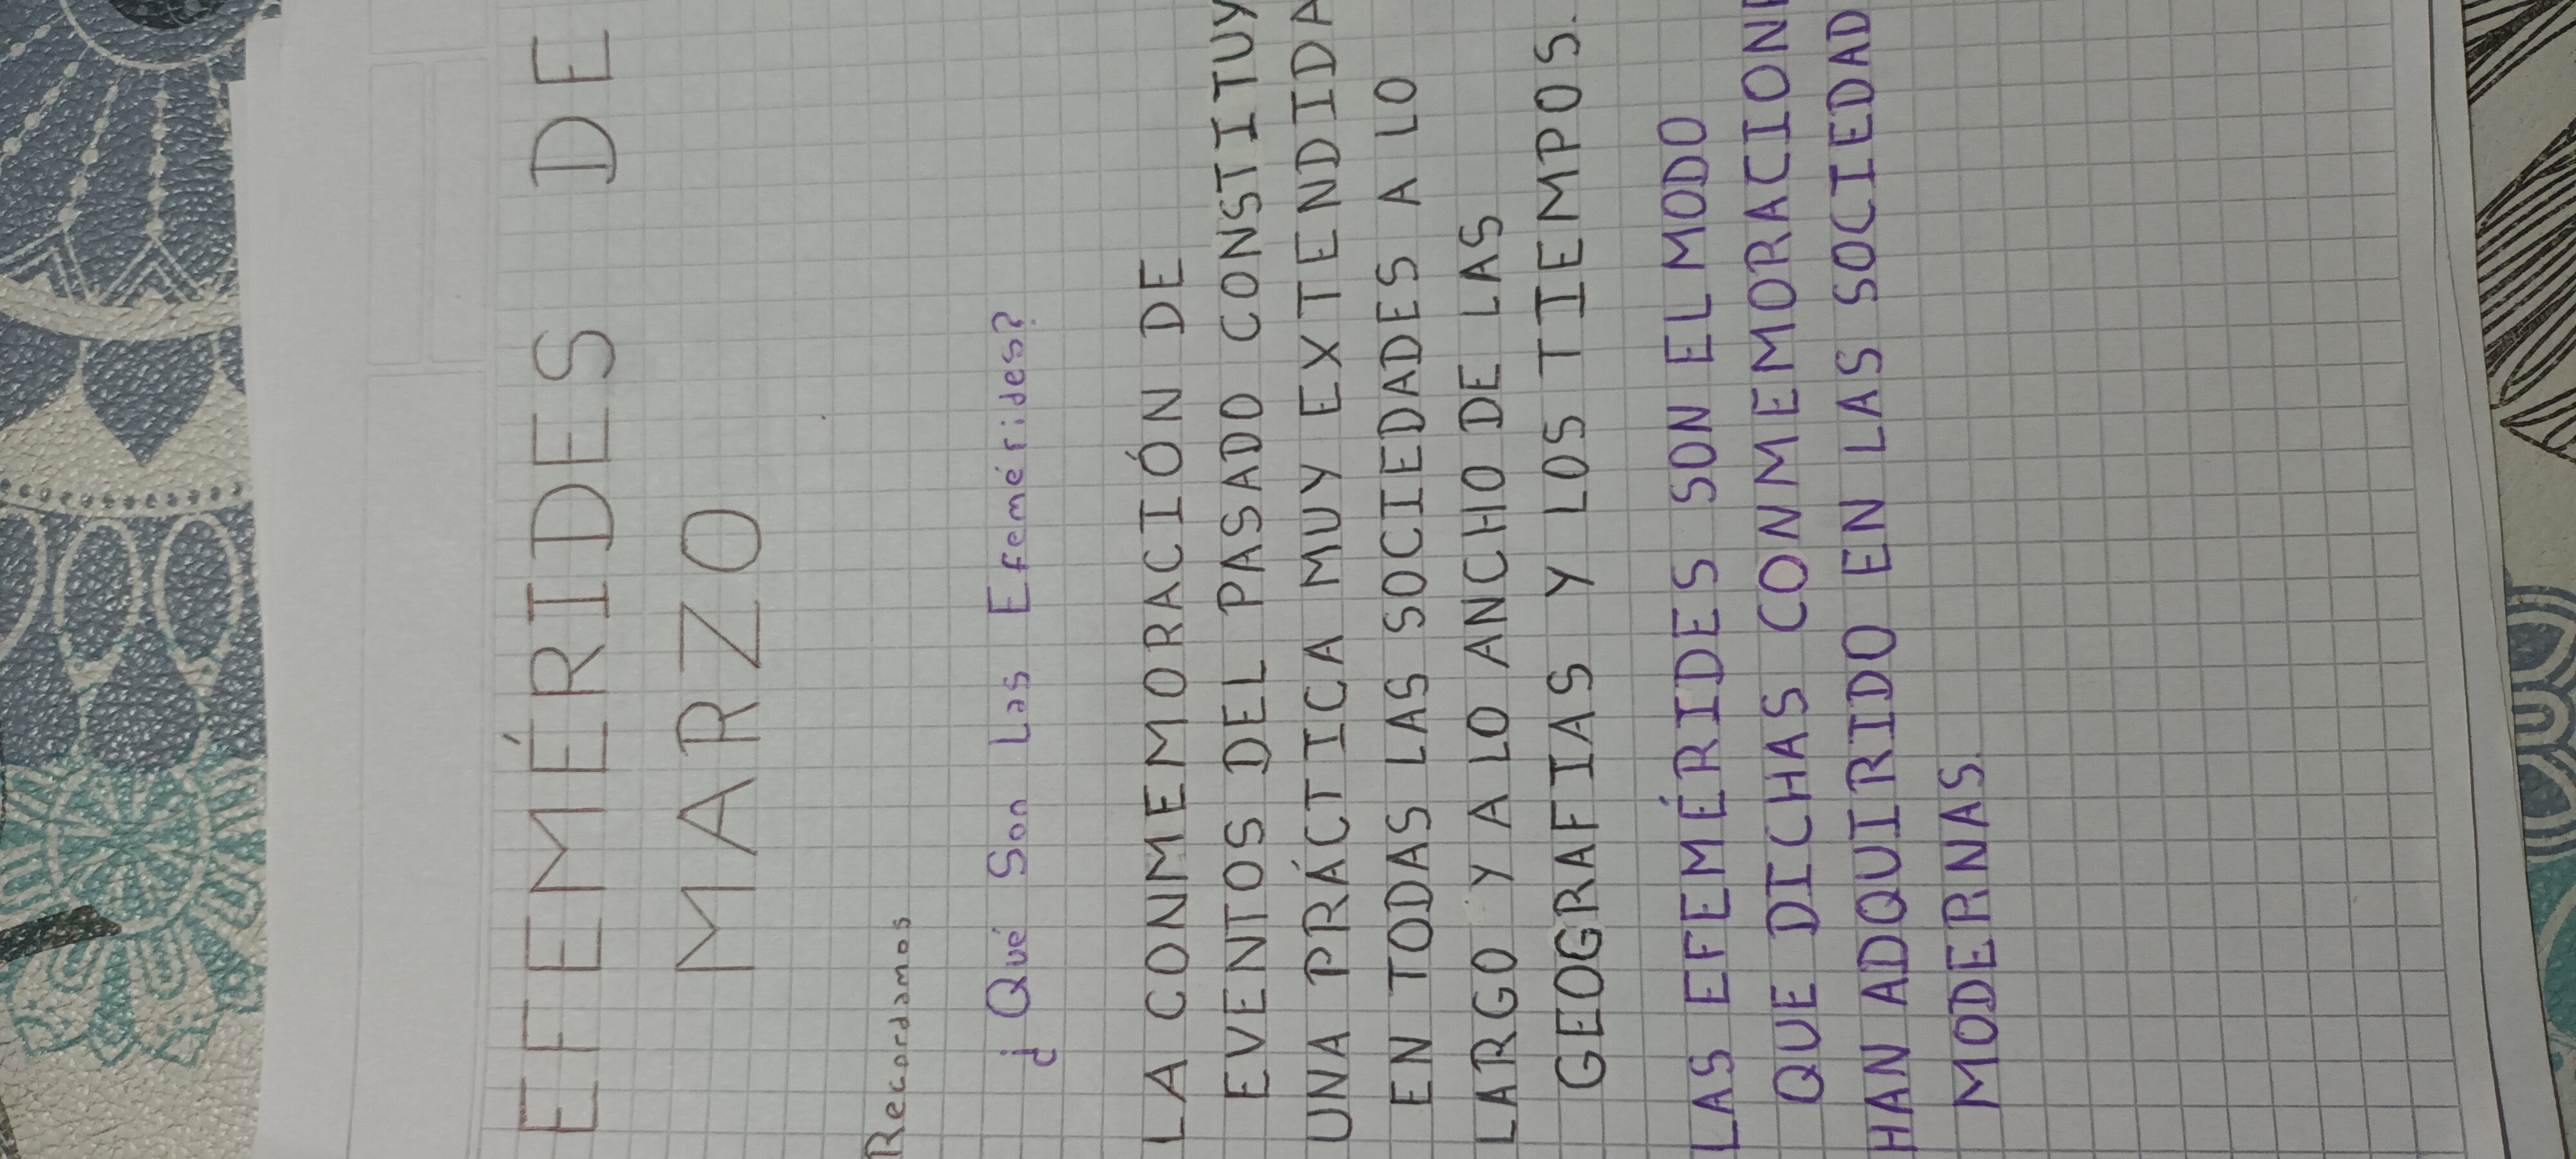 EFEMÉRIDES DE
MARZO
Recordamos
¿Qué Son Las Efemérides?
LA CONMEMORACIÓN DE
EVENTOS DEL PASADO CONSTITUY
UNA PRÁCTICA MUY EXTENDIDA
EN TODAS LAS SOCIEDADES A LO
LARGO Y A LO ANCHO DE LAS
GEOGRAFIAS Y LOS TIEMPOS.
LAS EFEMÉRIDES SON EL MODO
QUE DICHAS CONMEMORACIONE
HAN ADQUIRIDO EN LAS SOCIEDAD
MODERNAS.